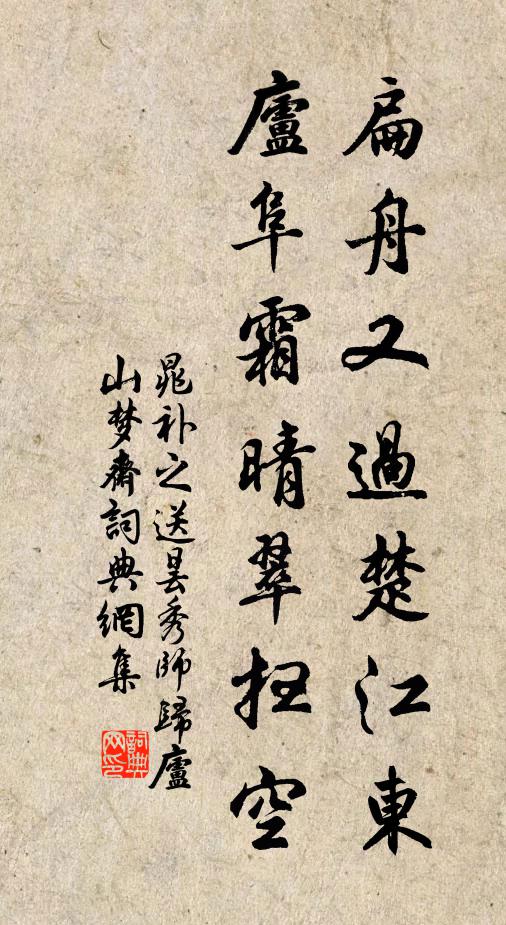 扁舟又過楚江東
廬阜霜晴翠扫空
晁补之送昙秀師歸廬
山梦齋詞典網集
詞典
网印